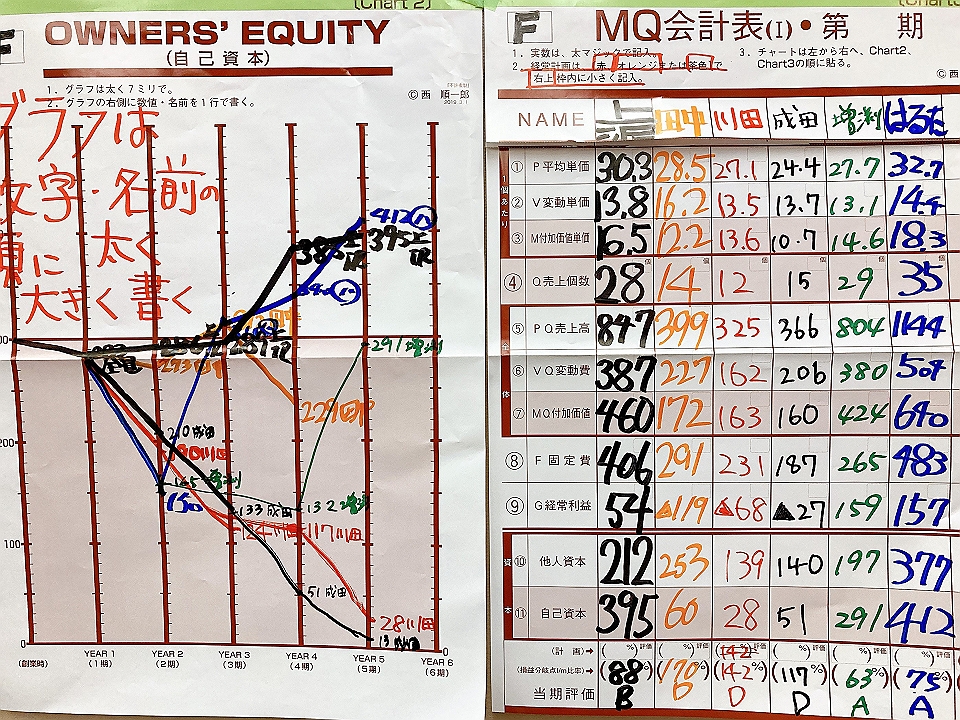 (Chart 2)
F
OWNERS' EQUITY
(自己資本)
1. グラフは太く7ミリで。
2. グラフの右側に数値・名前を1行で書く。
Ⓒ西 順一郎
グラフは
文字・名前の
に 太く
大きく書く
412
395
291増渕
229田中
210成田
190川田
150
133成田
132増渕
117川田
51成田
28川田
13成田
200
100
0
0
(創業時)
YEAR 1
(1期)
YEAR 2
(2期)
YEAR 3
(3期)
YEAR 4
(4期)
YEAR 5
(5期)
YEAR 6
(6期)
F
MQ会計表(I)・第 期
1. 実数は、太マジックで記入。
2. 経営計画は、(赤、オレンジまたは茶色)で
右上枠内に小さく記入。
3. チャートは左から右へ、Chart2、
Chart3の順に貼る。
Ⓒ西
NAME 田中 川田 成田 増渕 はるた
① P平均単価 30.3 28.5 27.1 24.4 27.7 32.7
② V変動単価 13.8 16.2 13.5 13.7 13.1 14.4
③ M付加価値単価 16.5 12.2 13.6 10.7 14.6 18.3
④ Q売上個数 28 14 12 15 29 35
⑤ PQ売上高 847 399 325 366 804 1144
⑥ VQ変動費 387 227 162 206 380 504
⑦ MQ付加価値 460 172 163 160 424 640
⑧ F固定費 406 291 231 187 265 483
⑨ G経常利益 54 ▲119 ▲68 ▲27 159 157
⑩ 他人資本 212 253 139 140 197 377
⑪ 自己資本 395 60 28 51 291 412
(計 画)→ ( %)評価 ( %)評価 ( %)評価 ( %)評価 ( %)評価
(損益分岐点f/m比率)→ (88%) (170%) (142%) (117%) (63%) (75%)
当期評価 B D D D A A